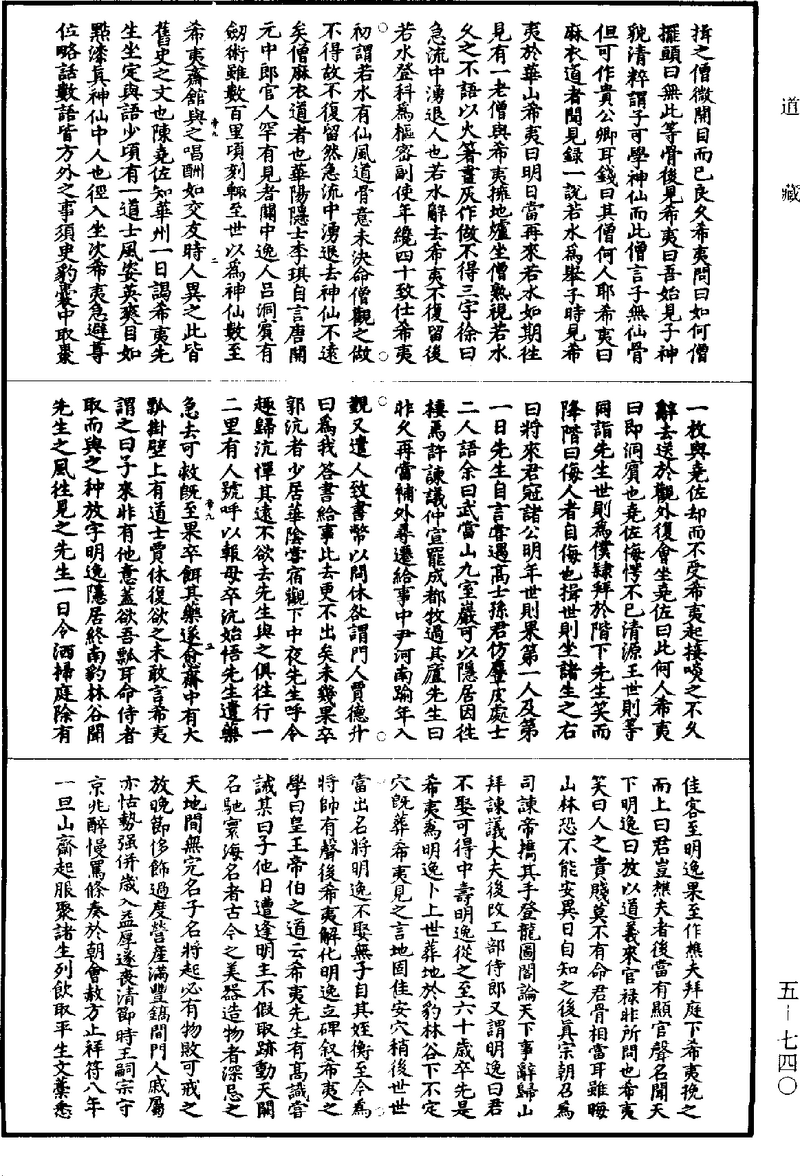 道藏
揖之僧微開目而已良久希夷問曰如何僧
擺頭曰無此等骨後見希夷曰吾始見子神
貌清粹謂子可學神仙而此僧言子無仙骨
但可作貴公卿耳錢曰其僧何人耶希夷曰
麻衣道者聞見錄一說若水為舉子時見希
夷於華山希夷曰明日當再來若水如期往
見有一老僧與希夷擁地爐坐僧熟視若水
久之不語以火箸畫灰作做不得三字徐曰
急流中湧退人也若水辭去希夷不復留後
若水登科為樞密副使年纔四十致仕希夷
初謂若水有仙風道骨意未決命僧觀之做
不得故不復留然急流中湧退去神仙不遠
矣僧麻衣道者也華陽隱士李琪自言唐開
元中郎官人罕有見者關中逸人呂洞賓有
劒術雖數百里頃刻輒至世以為神仙數至
帝九 二
希夷齋館與之唱酬如交友時人異之此皆
舊史之文也陳堯佐知華州一日謁希夷先
生坐定與語少頃有一道士風姿英爽目如
點漆真神仙中人也徑入坐次希夷急避尊
位略話數語皆方外之事須臾豹囊中取棗
一枚與堯佐却而不受希夷起接啖之不久
辭去送於觀外復會坐堯佐曰此何人希夷
曰即洞賓也堯佐悔愕不已清源王世則等
同詣先生世則為僕隸拜於階下先生笑而
降階曰侮人者自侮也揖世則坐諸生之右
曰將來君冠諸公明年世則果第一人及第
一日先生自言嘗遇高士孫君仿麞皮處士
二人語余曰武當山九室巖可以隱居因往
棲焉許諫議仲宣罷成都牧過其廬先生曰
非久再當補外尋遷給事中尹河南踰年入
觀又遣人致書幣以問休咎謂門人賈德升
曰為我答書給事此去更不出矣未幾果卒
郭沆者少居華陰嘗宿觀下中夜先生呼令
趣歸沆憚其遠不欲去先生與之俱往行一
二里有人號呼以報母卒沆始悟先生遺藥
帝九 三
急去可救旣至果卒餌其藥遂愈齋中有大
瓢掛壁上有道士賈休復欲之未敢言希夷
謂之曰子來非有他意蓋欲吾瓢耳命侍者
取而與之种放字明逸隱居終南豹林谷聞
先生之風往見之先生一日令洒掃庭除有
佳客至明逸果至作樵夫拜庭下希夷挽之
而上曰君豈樵夫者後當有顯官聲名聞天
下明逸曰放以道義來官祿非所問也希夷
笑曰人之貴賤莫不有命君骨相當耳雖晦
山林恐不能安異日自知之後真宗朝召為
司諫帝攜其手登龍圖閣論天下事辭歸山
拜諫議大夫後改工部侍郎又謂明逸曰君
不娶可得中壽明逸從之至六十歲卒先是
希夷為明逸卜上世葬地於豹林谷下不定
穴旣葬希夷見之言地固佳安穴稍後世世
當出名將明逸不娶無子自其姪衡至今為
將帥有聲後希夷解化明逸立碑叙希夷之
學曰皇王帝伯之道云希夷先生有高識嘗
誡某曰子他日遭逢明主不假取跡動天闕
名馳寰海名者古今之美器造物者深忌之
天地間無完名子名將起必有物敗可戒之
放晚節侈飾過度營產滿豐鎬間門人戚屬
亦怙勢强併歲入益厚遂喪清節時王嗣宗守
京兆醉慢罵條奏於朝會赦方止祥符八年
一旦山齋起服聚諸生列飲取平生文藁悉
五－七四〇